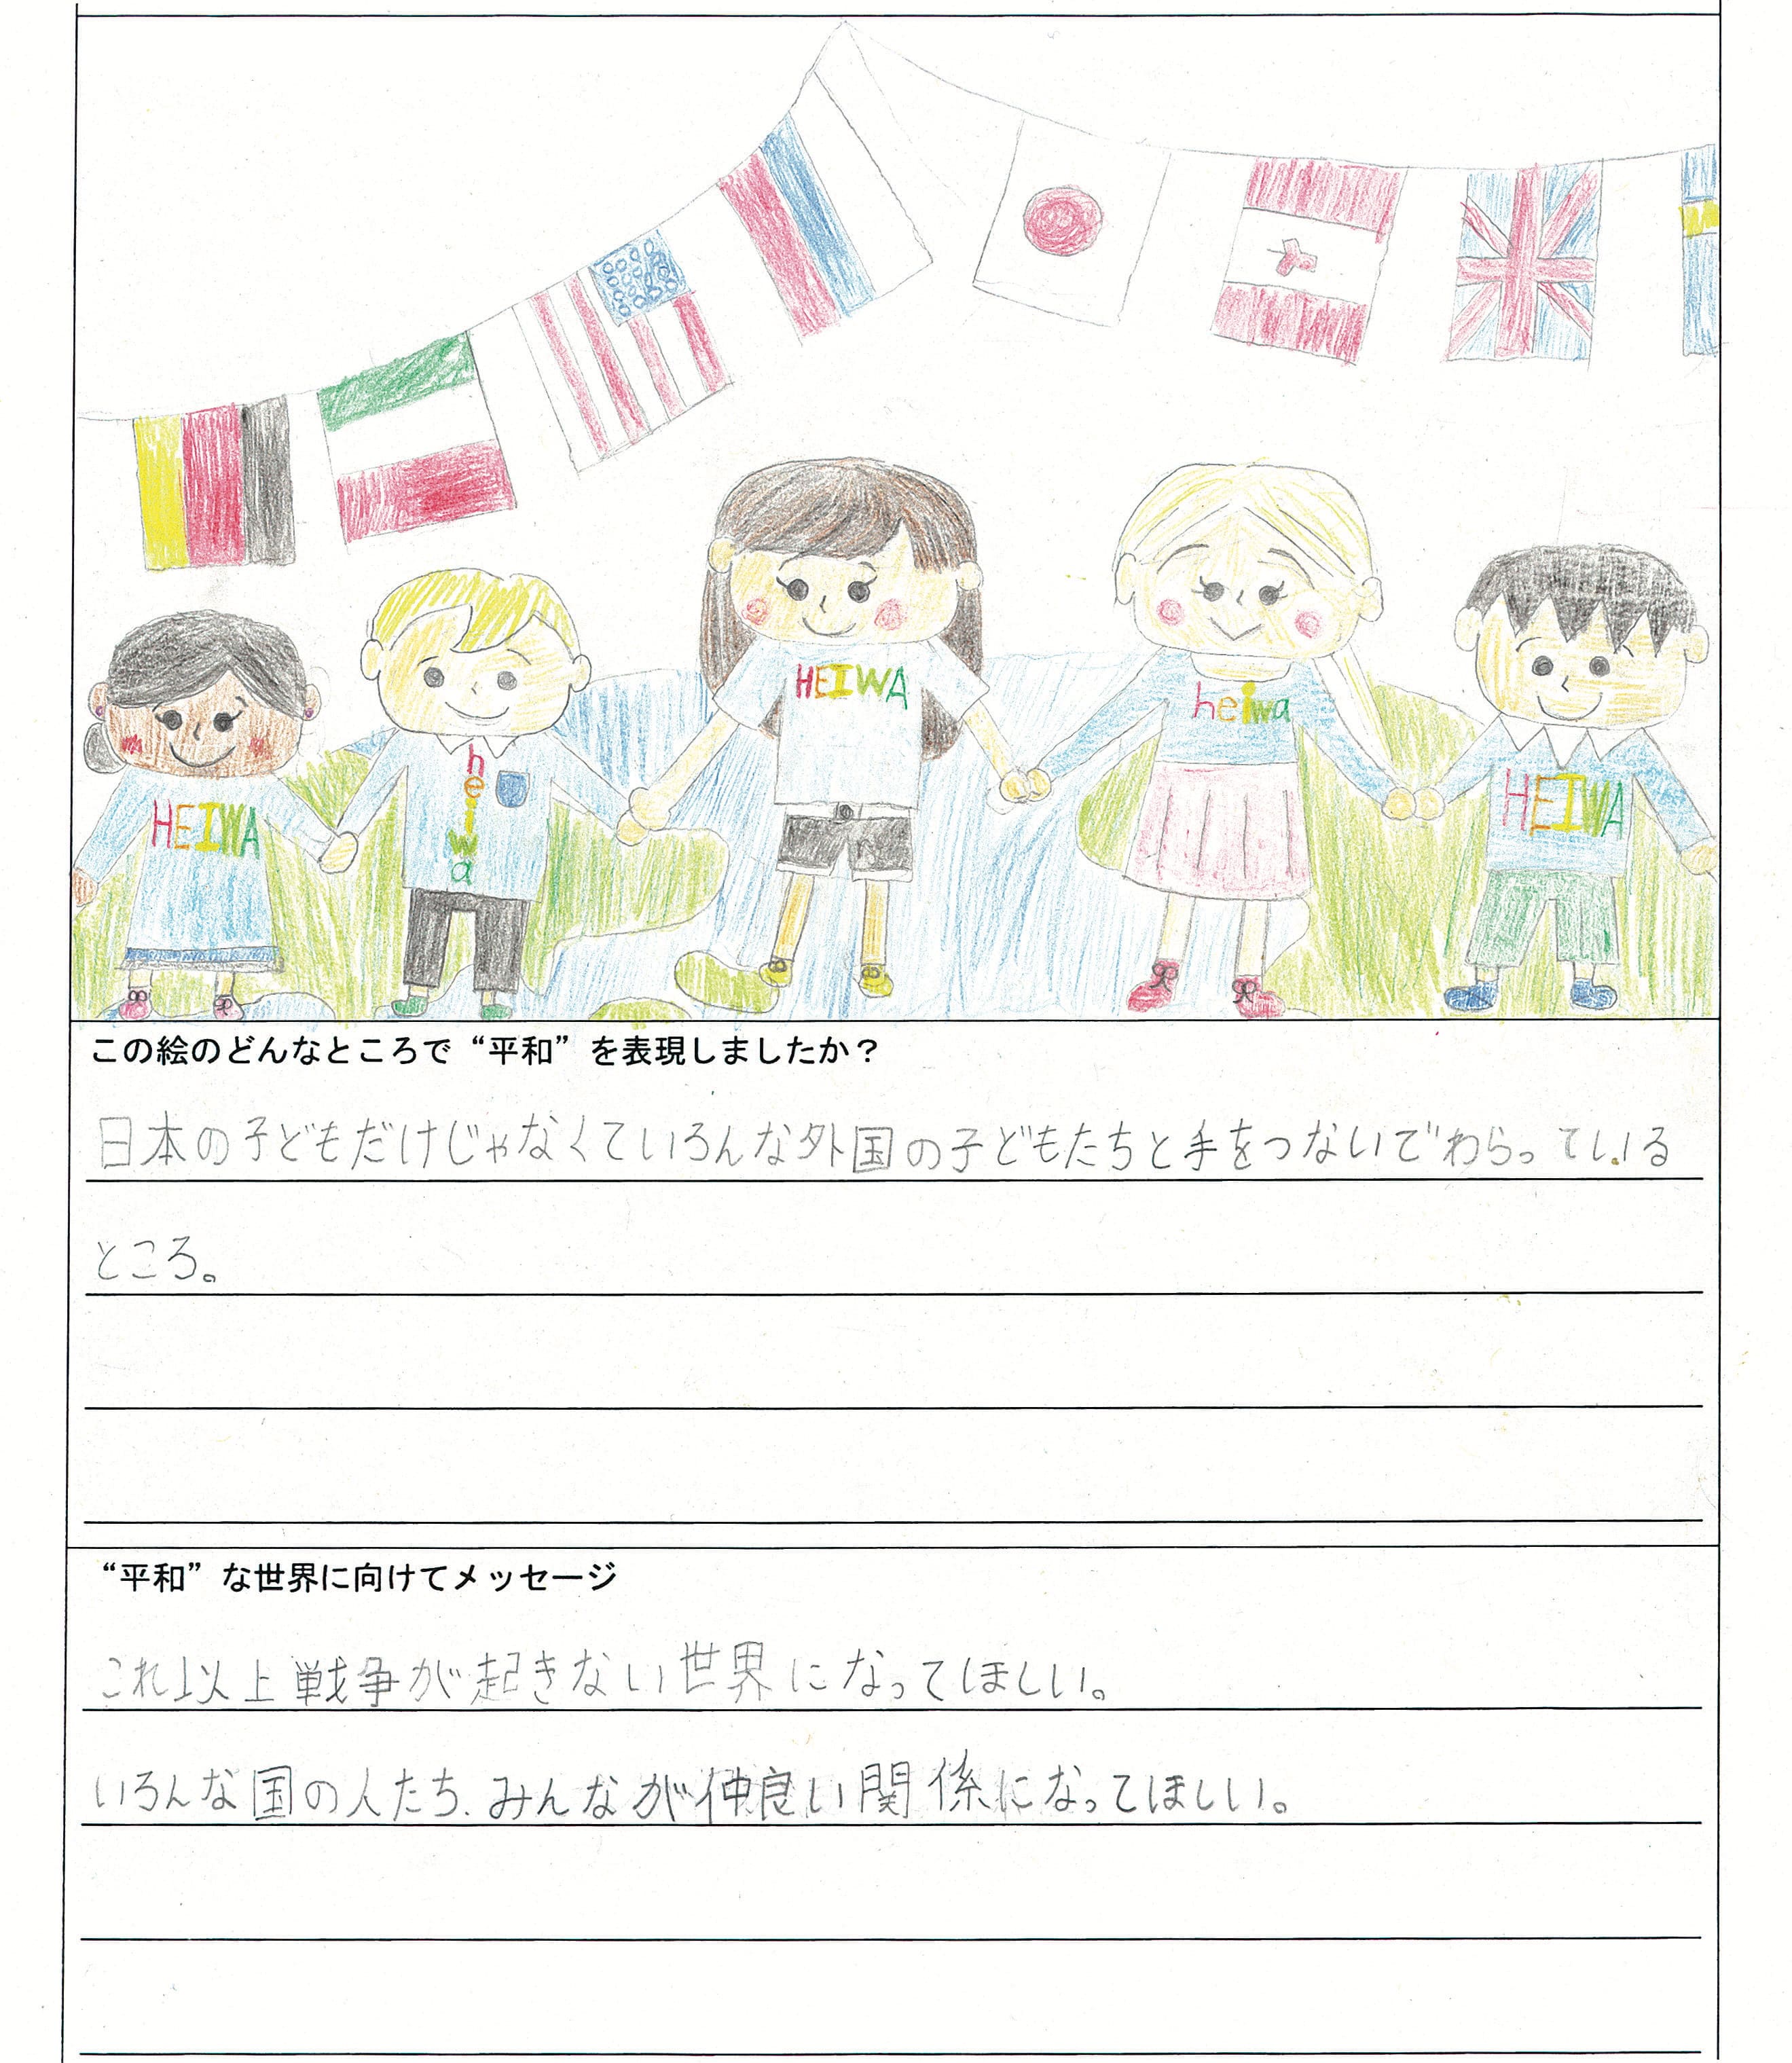 HEIWA
heiwa
HEIWA
heiwa
HEIWA
この絵のどんなところで“平和”を表現しましたか？
日本の子どもだけじゃなくていろんな外国の子どもたちと手をつないでわらっている
ところ。
“平和”な世界に向けてメッセージ
これ以上戦争が起きない世界になってほしい。
いろんな国の人たち、みんなが仲良い関係になってほしい。